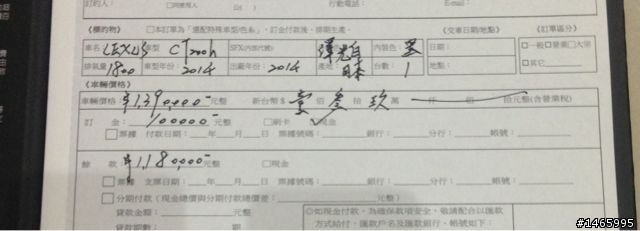 行動電話： E-mail：
〈標的物〉 □本訂單為「選配特殊車型/色系」，訂金付款後，排期生產。 〈交車日期/地點〉 〈訂單區分〉
車名 LEXUS 車型 CT200h SFX(內部代號) 內裝色：黑 日期： □一般□營業□大宗
排氣量 1800 車型年份：2014 出廠年份：2014 產地 日本 台數：1 地點： □其它
〈車輛價格〉
車輛價格 $1,390,000- 元整 新台幣 壹 佰 叁 拾 玖 萬 仟 佰 拾元整(含營業稅)
訂 金：100000- 元整 □刷卡 □現金
□票據 付款日期： 年 月 日 票據號碼： 銀行： 分行： 帳號：
餘 款 $1,180,000- 元整 □現金
□票據 支票日期： 年 月 日 票據號碼： 銀行： 分行： 帳號：
□分期付款（現金總價與分期付款總價差： 元整）
貸款金額： 元整 ◎如現金付款，為確保款項安全，敬請配合以匯款
貸款期數： 期 方式給付，匯款戶名及匯款銀行、帳號如下：
#1465995